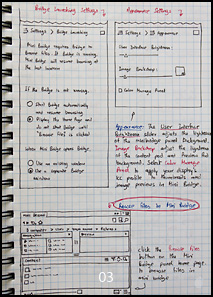 Bridge Launching Settings
Appearance Settings
Settings > Bridge Launching
Mini Bridge requires Bridge to
browse files. If Bridge is running,
Mini Bridge will resume browsing at
the last location.
If the Bridge is not running:
Start Bridge automatically
and resume browsing
Display the Home page and
do not start Bridge until
"Browse files" is clicked
When Mini Bridge opens Bridge:
Use an existing window
Use a separate Bridge
Settings > Appearance
User Interface Brightness:
Image Backdrop:
Color Manage Panel
Appearance: The User Interface
Brightness slider adjusts the brightness
of the MiniBridge panel background.
Image Backdrop adjust the brightness
of the content pod and Preview Pod
background. Select Color Manage
Panel to apply your display's
ICC profile to thumbnails and
image previews in Mini Bridge.
Browse Files in Mini Bridge
click the Browse files
button on the Mini
Bridge panel home page
to browse files in
mini bridge
CONTENT
03